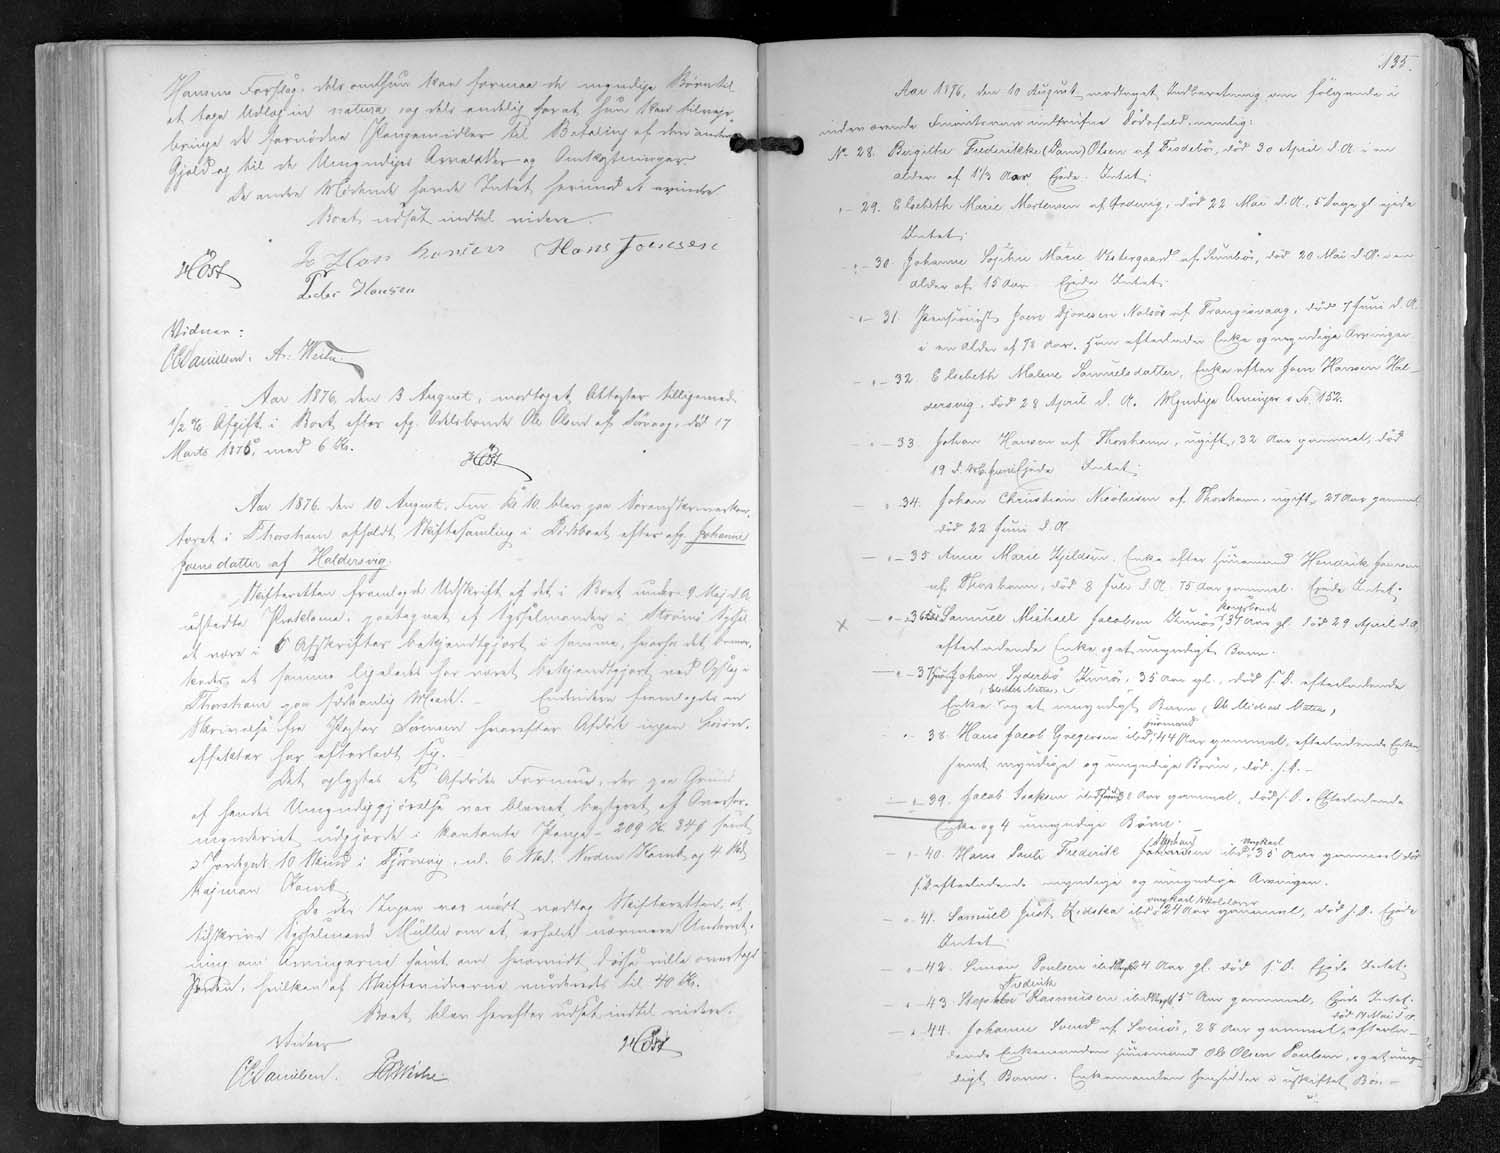 Hansens Forslag, dels om Hun kan formaa de myndige Børn til
at tage Udlæg in natura, og dels endelig forat hun kan tilveje-
bringe de fornødne Pengemidler til Betaling af den anden
Gjæld og til de Umyndiges Arvelodder og Omkostninger
De andre Mødende havde Intet herimod at erindre
Boet udsat indtil videre.
HØst
Hans Hansen Hans Joensen
Peder Hansen
Vidner:
CCDanielsen. A. Weihe.
Aar 1876, den 3 August, modtoges Attester tilligemed
1/2 % Afgift i Boet efter afg. Odelsbonde Ole Olsen af Sørvaag, død 17
Marts 1875, med 6 Kr.
HØst
Aar 1876. den 10 August, Fm. Kl 10. blev paa Sorenskriverkon-
toret i Thorshavn afholdt Skiftesamling i Dødsboet efter afg. Johanne
Joensdatter af Haldersvig.
Skifteretten fremlagde Udskrift af det i Boet under 9 Maj d.A.
udstedte Proklama, paategnet af Sysselmanden i Strømø Syssel
at være i 6 Afskrifter bekjendtgjort i samme, hvorhos det bemær-
kedes, at samme ligeledes har været bekjendtgjort ved Opslag i
Thorshavn paa sædvanlig Maade. — Endvidere fremlagdes en
Skrivelse fra Pastor Sørensen hvorefter Afdøde ingen Løsøre-
effekter har efterladt sig.
Det oplystes at Afdødes Formue, der paa Grund
af hendes Umyndiggjørelse var blevet bestyret af Overfor-
mynderiet udgjorde i kontante Penge 209 Kr. 34 Ø samt
i Jordegods 10 Skind i
Da der Ingen var mødt, vedtog Skifteretten, at
tilskrive Sysselmand Müller om at erholde nærmere Underret-
ning om Arvingerne samt om hvorvidt disse ville overtage
Jorden, hvilken af Skiftevidnerne vurderedes til 40 Kr.
Boet blev herefter udsat indtil videre.
Vidner HØst
CCDanielsen. Weihe.
135.
Aar 1876, den 10 August, modtaget Indberetning om følgende i
indeværende Finantsaar indtrufne Dødsfald nemlig:
No 28. Birgithe Frederikke (Dam) Olsen af Tvedebø, død 30 April d.A. i en
alder af 1 1/3 Aar. Ejede Intet.
" — 29. Elsebeth Marie Mortensen af død 22 Mai d.A., 5 Dage gl. ejede
Intet.
" — 30. Johanne Sophie Marie Vestergaard af Sumbø, død 20 Mai d.A. i en
alder af 15 Aar. Ejede Intet.
" — 31. Pensionist Joen Djonesen Nolsø af Trangisvaag, død 7 Juni d.A.
i en Alder af 78 Aar. Han efterlader Enke og myndige Arvinger
— " — 32. Elsebeth Malene Samuelsdatter, Enke efter Joen Hansen Hal-
dersvig, død 28 April d.A. Myndige Arvinger s. Nr. 152.
" — 33. Johan Hansen af Thorshavn, ugift, 32 Aar gammel, død
19 d. Ejede Intet.
" — 34. Johan Christian Nicolaisen af Thorshavn, ugift, 27 Aar gammel
død 22 Juni d.A.
— " — 35. Anne Marie Kjeldsen. Enke efter Huusmand Hendrik Joensen
af Thorshavn, død 8 Juli d.A. 75 Aar gammel. Ejede Intet.
x — " — 36. Samuel Michael Jacobsen Kunø, Kongsbonde 37 Aar gl. død 29 April d.A.
efterladende Enke og et umyndigt Barn.
— " — 37. Johan Syderbø Kunø, 35 Aar gl., død s.D. efterladende
Enke Elsebeth og et umyndigt Barn, Ole Michael
" — 38. Hans Jacob Gregersen ibd. huusmand 44 Aar gammel, efterladende Enke
samt myndige og umyndige Børn, død s.D. —
— " — 39. Jacob Joakim ibd. 38 Aar gammel, død s.D. Efterladende
Enke og 4 umyndige Børn.
— " — 40. Hans Pauli Frederik ibd. Ungkarl 35 Aar gammel død
s.D. efterladende myndige og umyndige Arvinger.
— " — 41. Samuel Just ibd. ungkarl Skolelærer 24 Aar gammel, død s.D. Ejede
Intet.
— " — 42. Simon Poulsen ibd. 24 Aar gl. død s.D. Ejede Intet.
— " — 43. Stephan Frederik Rasmussen ibd. 15 Aar gammel, Ejede Intet.
død 14 Mai d.A.
— " — 44. Johanne af Svinø, 28 Aar gammel, efterla-
dende Enkemanden Huusmand Ole Olsen Poulsen, og et umyn-
digt Barn. Enkemanden hensidder i uskiftet Bo. —